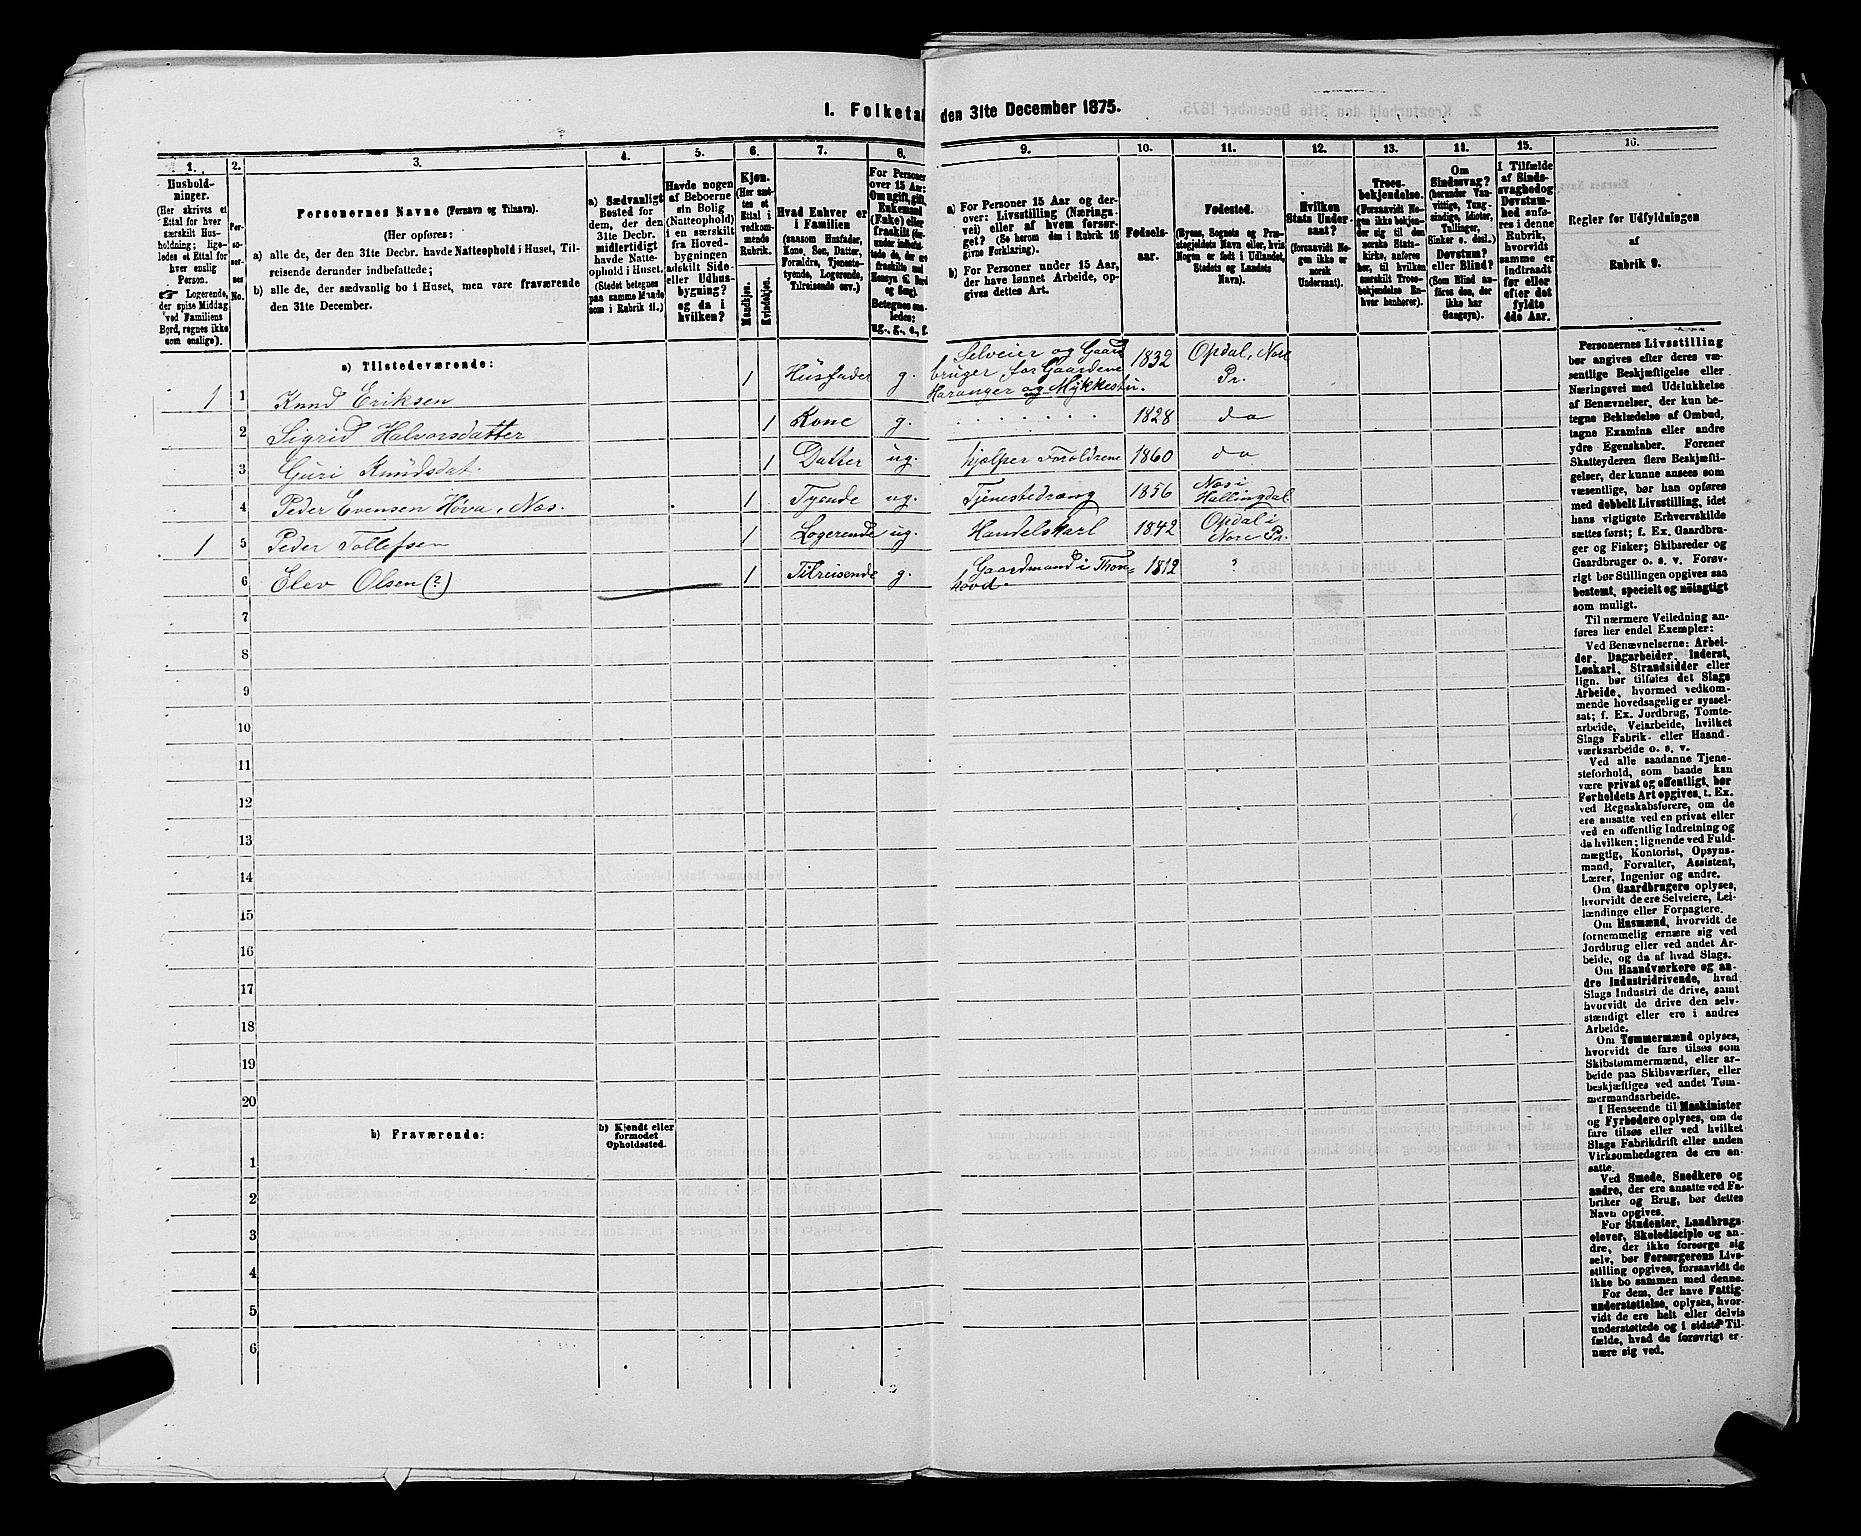 1. Folketal den 31te December 1875.
1. 2. 3. 4. 5. 6. 7. 8. 9. 10. 11. 12. 13. 14. 15. 16.
Hushold-
ninger.
(Her skrives et
Ettal for hver
særskilt Hus-
holdning; lige-
ledes et Ettal for
hver enslig
Person.
☞ Logerende,
der spise Middag
ved Familiens
Bord, regnes ikke
som enslige).
Per-
so-
ner-
nes
No.
Personernes Navne (Fornavn og Tilnavn).
(Her opføres:
a) alle de, der den 31te Decbr. havde Natteophold i Huset, Til-
reisende derunder indbefattede;
b) alle de, der sædvanlig bo i Huset, men vare fraværende
den 31te December.
a) Sædvanligt
Bosted for
dem, der den
31te Decbr.
midlertidigt
havde Natte-
ophold i Huset.
(Stedet betegnes
paa samme Maade
som i Rubrik 11.)
Havde nogen
af Beboerne
sin Bolig
(Natteophold)
i en særskilt
fra Hoved-
bygningen
adskilt Side-
eller Udhus-
bygning?
og da i
hvilken?
Kjøn.
(Her sæt-
tes et
Ettal i
vedkom-
mende
Rubrik.
Mandkjøn.
Kvindekjøn.
Hvad Enhver er
i Familien
(saasom Husfader,
Kone, Søn, Datter,
Forældre, Tjeneste-
tyende, Logerende,
Tilreisende osv.)
For Personer
over 15 Aar:
Om ugift, gift,
Enkemand
(Enke) eller
fraskilt
Betegnes saa-
ledes:
ug., g., e., f.
a) For Personer 15 Aar og der-
over: Livsstilling (Nærings-
vei) eller af hvem forsør-
get? (Se herom den i Rubrik 16
givne Forklaring).
b) For Personer under 15 Aar,
der have lønnet Arbeide, op-
gives dettes Art.
Fødsels-
aar.
Fødested.
(Byens, Sognets og Præ-
stegjeldets Navn eller, hvis
Nogen er født i Udlandet,
Stedets og Landets
Navn).
Hvilken
Stats Under-
saat?
(forsaavidt No-
gen ikke er
norsk
Undersaat).
Troes-
bekjendelse.
(Forsaavidt No-
gen ikke bekjen-
der sig til den
norske Stats-
kirke, anføres
her, til hvilken
særskilt Troes-
bekjendelse En-
hver henhører).
Om
Sindssvag?
(herunder Van-
vittige, Tung-
sindige, Idioter,
Tullinger,
Sinker o. desl.)
Døvstum?
eller Blind?
(Som Blind an-
føres den, der
ikke har
Gangsyn).
I Tilfælde
af Sinds-
svaghed og
Døvstum-
hed anfø-
res i denne
Rubrik,
hvorvidt
samme er
indtraadt
før eller
efter det
fyldte
4de Aar.
Regler for Udfyldningen
af
Rubrik 9.
a) Tilstedeværende:
1 1 Knud Eriksen 1 Husfader g. Selveier og Gaard bruger for Gaardene Haranger og Mykkestu. 1832 Opdal, Nore Pr.
2 Sigrid Halvorsdatter 1 Kone g. . . . . . . 1828 do
3 Guri Knudsdat. 1 Datter ug. hjelper Foreldrene 1860 do
4 Peder Evensen Hova, Næs. 1 Tyende ug. Tjenestedræng 1856 Næs i Hallingdal
1 5 Peder Tollefsen 1 Logerende ug. Handelskarl 1842 Opdal i Nore Pr.
6 Elev Olsen (?) 1 Tilreisende g. Gaardmand i Thon- hovd 1812 ?
7
8
9
10
11
12
13
14
15
16
17
18
19
20
b) Fraværende:
b) Kjendt eller
formodet
Opholdssted.
1
2
3
4
5
6
Personernes Livsstilling
bør angives efter deres væ-
sentlige Beskjæftigelse eller
Næringsvei med Udelukkelse
af Benævnelser, der kun be-
tegne Beklædelse af Ombud,
tagne Examina eller andre
ydre Egenskaber. Forener
Skatteyderen flere Beskjæfti-
gelser, der kunne ansees som
væsentlige, bør han opføres
med dobbelt Livsstilling, idet
hans vigtigste Erhvervskilde
sættes først; f. Ex. Gaardbru-
ger og Fisker; Skibsreder og
Gaardbruger o. s. v. Forøv-
rigt bør Stillingen opgives saa
bestemt, specielt og nøiagtigt
som muligt.
Til nærmere Veiledning an-
føres her endel Exempler:
Ved Benævnelserne: Arbei-
der, Dagarbeider, Inderst,
Løskarl, Strandsidder eller
lign. bør tilføies det Slags
Arbeide, hvormed vedkom-
mende hovedsagelig er syssel-
sat; f. Ex. Jordbrug, Tomte-
arbeide, Veiarbeide, hvilket
Slags Fabrik- eller Haand-
værksarbeide o. s. v.
Ved alle saadanne Tjene-
steforhold, som baade kan
være privat og offentligt, bør
Forholdets Art opgives, t. Ex.
ved Regnskabsførere, om de
ere ansatte ved en privat eller
ved en offentlig Indretning og
da hvilken; lignende ved Fuld-
mægtig, Kontorist, Opsyns-
mand, Forvalter, Assistent,
Lærer, Ingeniør og andre.
Om Gaardbrugere oplyses,
hvorvidt de ere Selveiere, Lei-
lændinge eller Forpagtere.
Om Husmænd, hvorvidt de
fornemmelig ernære sig ved
Jordbrug eller ved andet Ar-
beide, og da af hvad Slags.
Om Haandværkere og an-
dre Industridrivende, hvad
Slags Industri de drive, samt
hvorvidt de drive den selv-
stændigt eller ere i andres
Arbeide.
Om Tømmermænd oplyses,
hvorvidt de fare tilsøs som
Skibstømmermænd, eller ar-
beide paa Skibsværfter, eller
beskjæftiges ved andet Tøm-
mermandsarbeide.
I Henseende til Maskinister
og Fyrbødere oplyses, om de
fare tilsøs eller ved hvilket
Slags Fabrikdrift eller anden
Virksomhedsgren de ere an-
satte.
Ved Smede, Snedkere og
andre, der ere ansatte ved Fa-
briker og Brug, bør dettes
Navn opgives.
For Studenter, Landbrugs-
elever, Skoledisciple og an-
dre, der ikke forsørge sig
selv, bør Forsørgerens Livs-
stilling opgives, forsaavidt de
ikke bo sammen med denne.
For dem, der have Fattig-
understøttelse, oplyses, hvor-
vidt de ere helt eller delvis
understøttede og i sidste Til-
fælde, hvad de forøvrigt er-
nære sig ved.